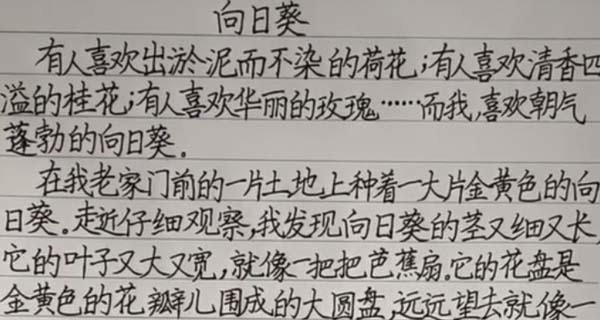 向日葵
有人喜欢出淤泥而不染的荷花；有人喜欢清香四
溢的桂花；有人喜欢华丽的玫瑰……而我，喜欢朝气
蓬勃的向日葵。
在我老家门前的一片土地上种着一大片金黄色的向
日葵。走近仔细观察，我发现向日葵的茎又细又长，
它的叶子又大又宽，就像一把把芭蕉扇。它的花盘是
金黄色的花瓣儿围成的大圆盘，远远望去就像一